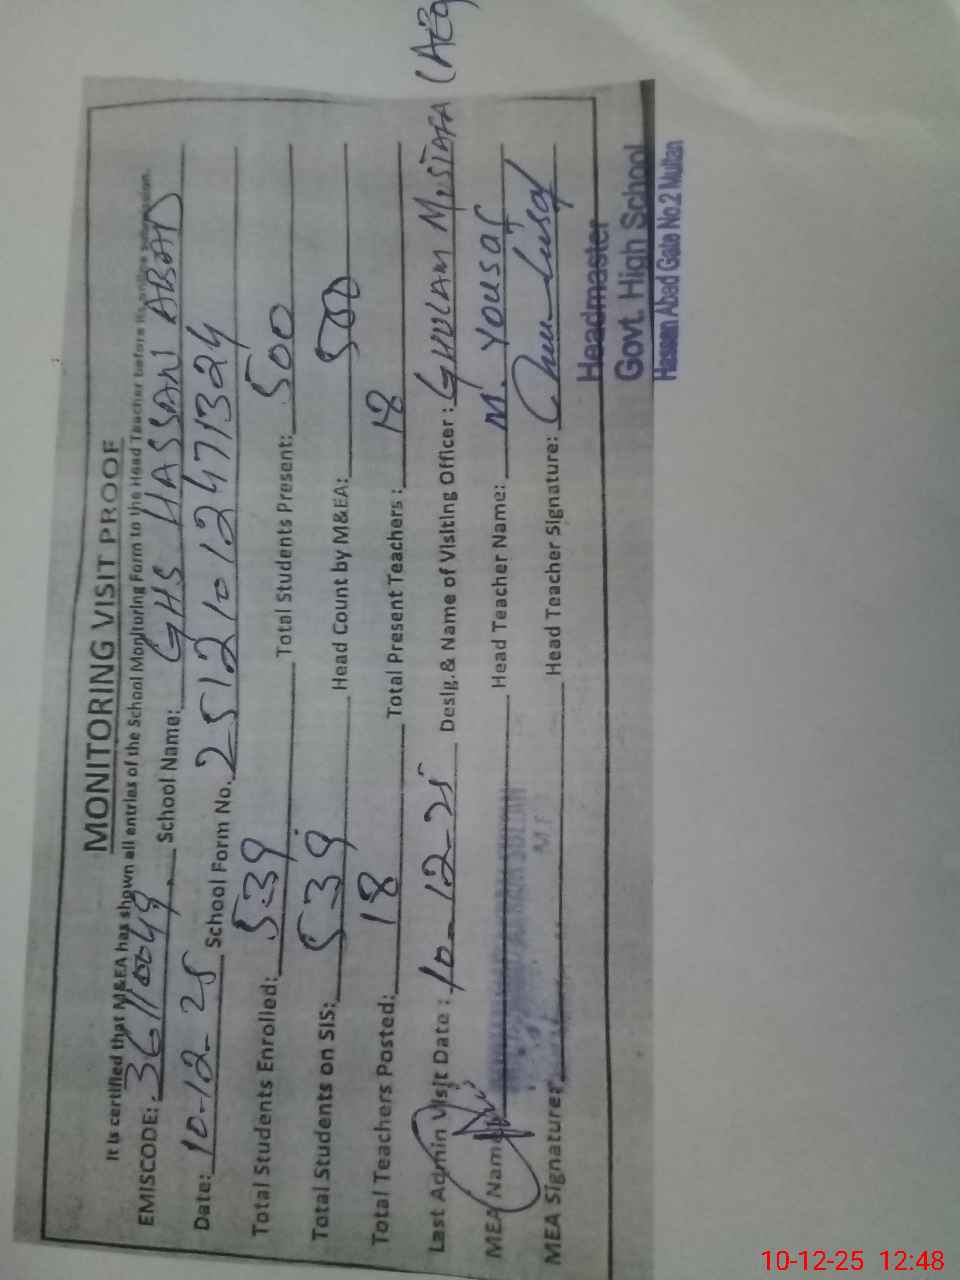 MONITORING VISIT PROOF
It is certified that M&EA has shown all entries of the School Monitoring Form to the Head Teacher before its online submission.
EMISCODE: 36110049 School Name: GHS HASSAN ABAD
Date: 10-12-25 School Form No. 25121012471324
Total Students Enrolled: 539 Total Students Present: 500
Total Students on SIS: 539 Head Count by M&EA: 500
Total Teachers Posted: 18 Total Present Teachers: 18
Last Admin Visit Date: 10-12-25 Desig.& Name of Visiting Officer: GHULAM MUSTAFA (AEO
MEA Name: Head Teacher Name: M. YOUSAF
MEA Signature: Head Teacher Signature:
Headmaster
Govt. High School
Hassan Abad Gate No.2 Multan
10-12-25 12:48